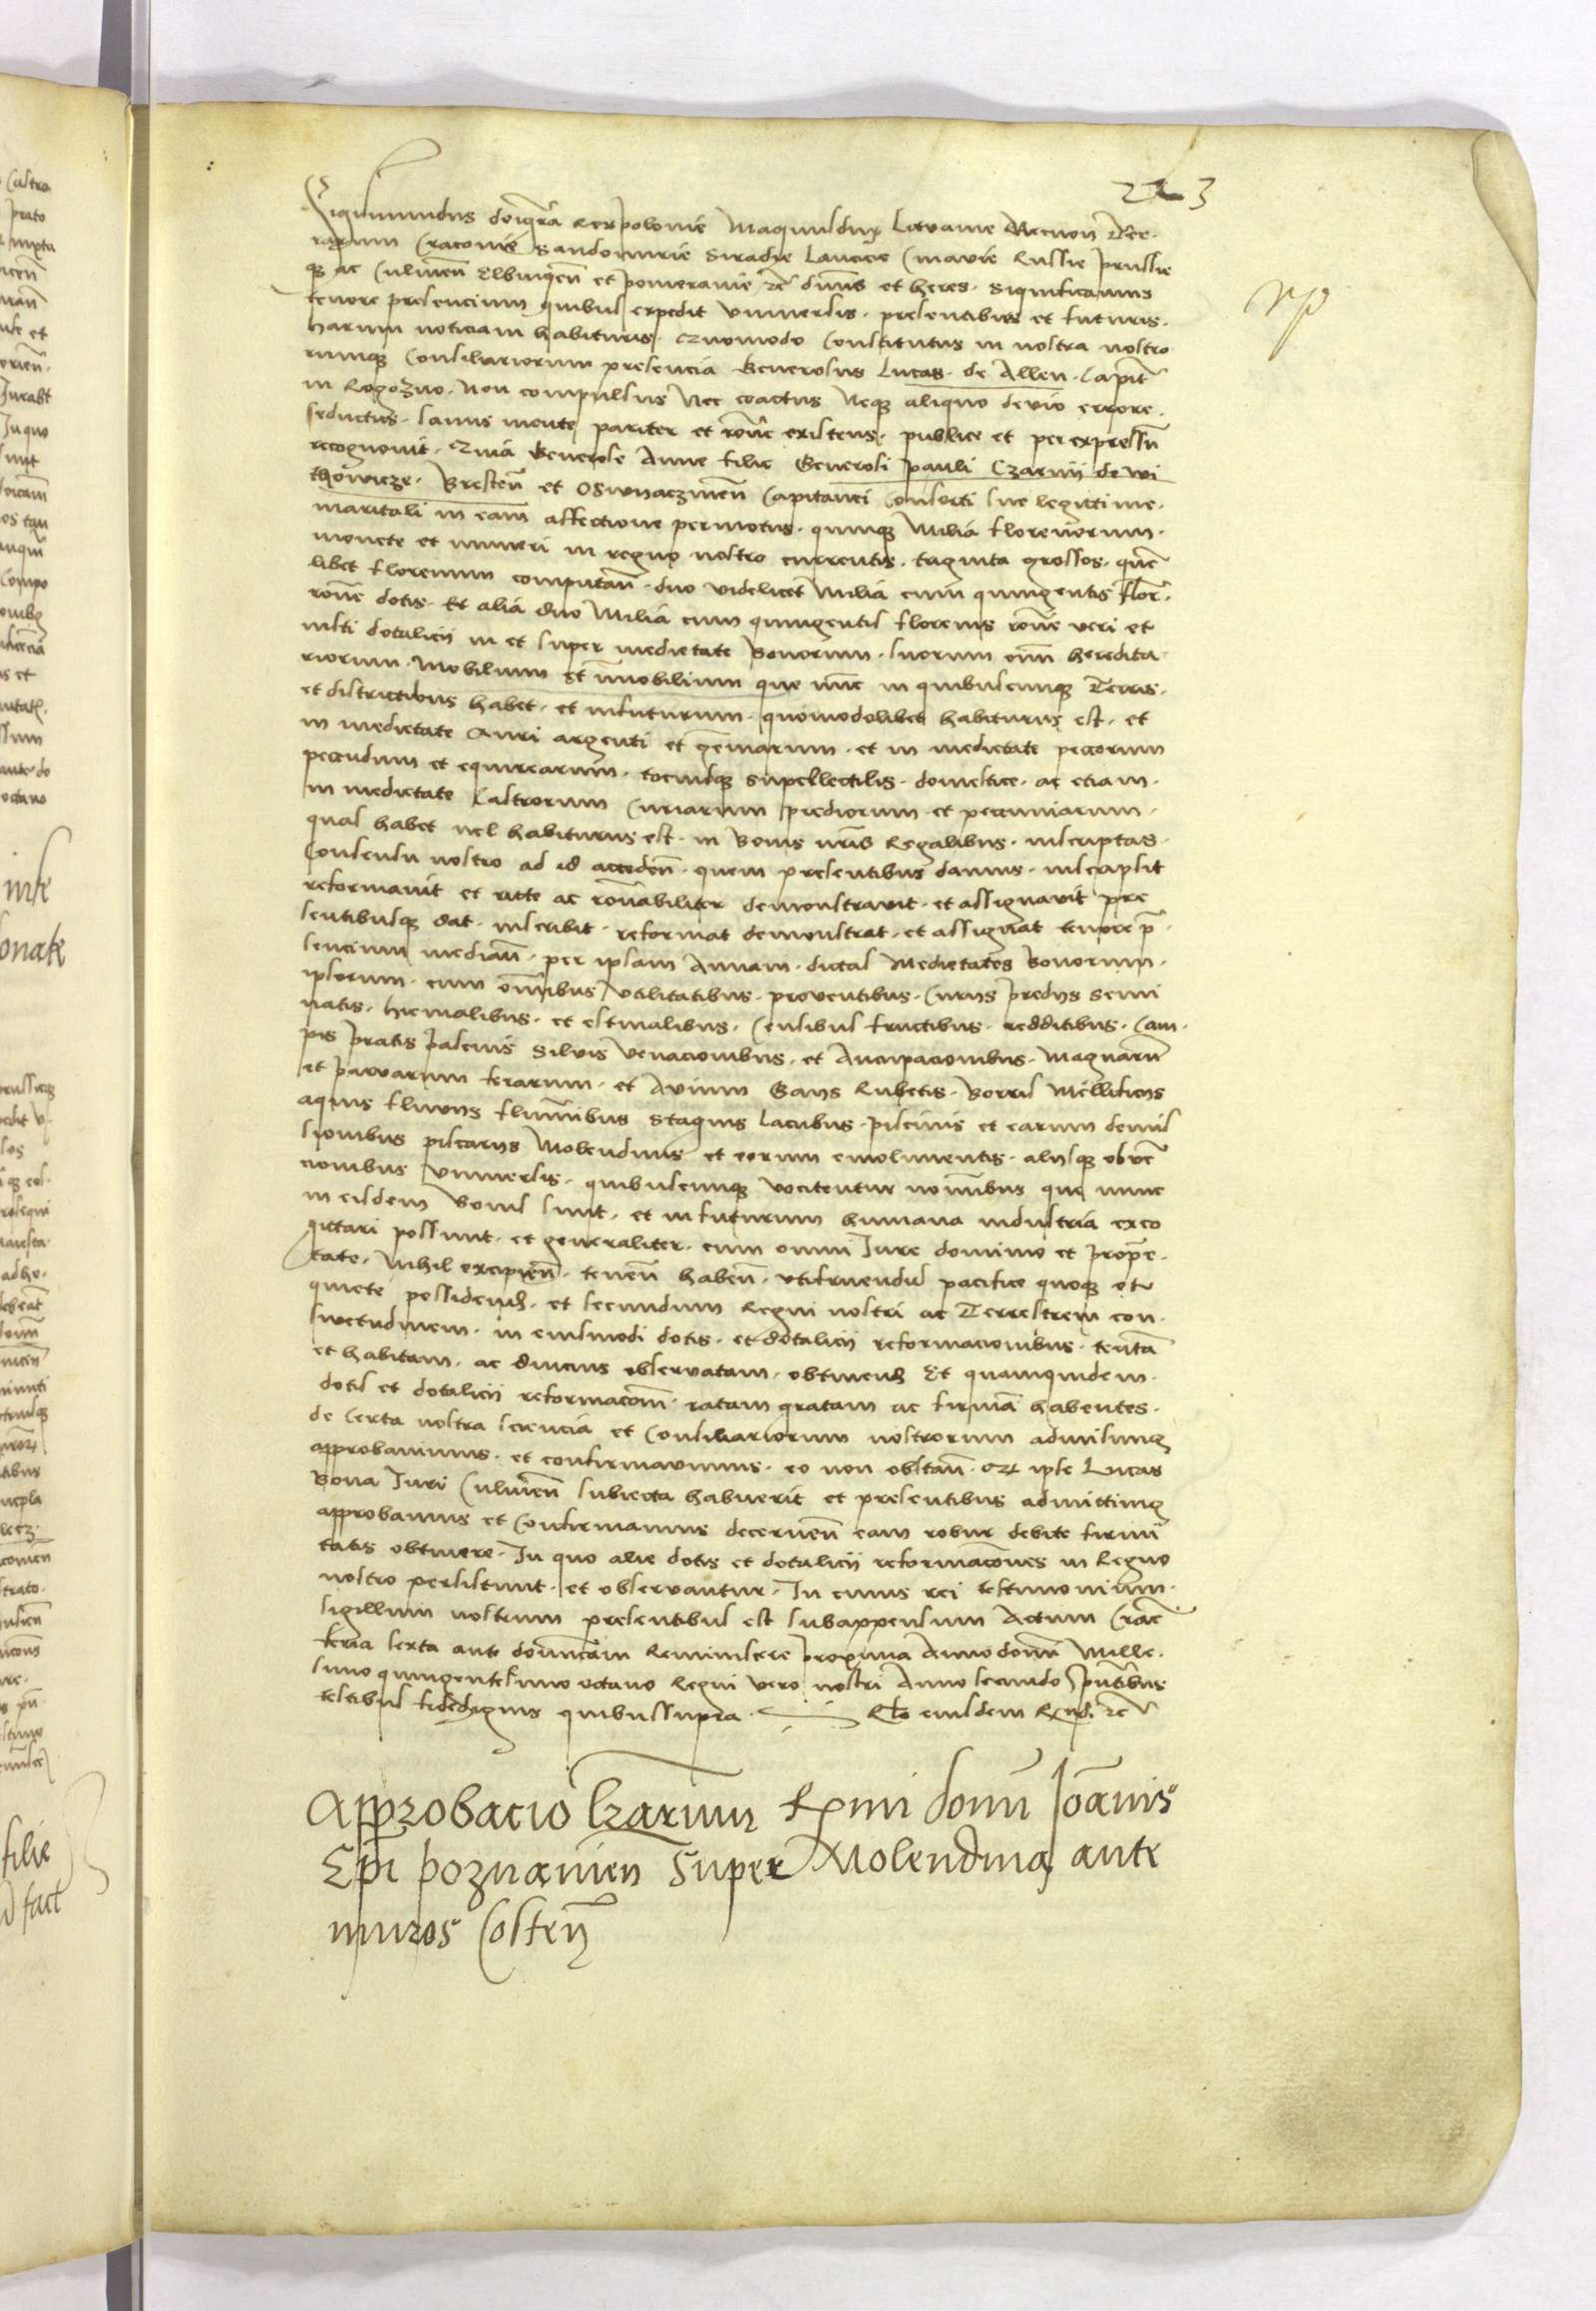 223
Sigismundus dei gr̃a Rex polonie Magnusdux Lituanie Necnon Ter-
rarum Cracovie Sandomirie Siradie Lancicie Cuiavie Russie prussie
q; ac Culmeñ Elbingeñ et pomeranie zc̃ dñus et heres. Significamus
tenore presencium quibus expedit universis. presentibus et futuris.
harum noticiam habituris. Quomodo Constitutus in nostra nostro
rumq; Consiliariorum presencia Generosus Lucas de Allen. Capit̃
in Rogozno. Non compulsus Nec coactus Neq; aliquo devio errore.
seductus. sanus mente pariter et rõne existens. publice et per expressũ
recognovit. Quia Generose Anne filie Generosi pauli Czarnij de wi
thowicze. Bresteñ et Oswyaczimeñ Capitanei Consorti sue legittime.
maritali in eam affectione permotus. quinq; Milia florenorum.
monete et numeri in regno nostro currentis. triginta grossos. quẽ
libet florenum computañ. duo videlicet Milia cum quingentis flor̃.
rõne dotis. Et alia duo Milia cum quingentis florenis rõne veri et
iusti dotalicij in et super medietate Bonorum. suorum oim̃ heredita
riorum. Mobilium et im̃obilium que nũc in quibuscunq; Terris.
et districtibus habet. et infuturum. quomodolibet habiturus est. et
in medietate Auri argenti et gem̃arum. et in medietate peccorum
peccudum et equirearum. tociusq; supellectilis. domestice. ac etiam.
in medietate Castrorum Curiarum prediorum et pecuniarum.
quas habet vel habiturus est. in Bonis nr̃is Regalibus. inscriptas.
Consensu nostro ad id accedeñ. quem presentibus damus. inscripsit
reformavit et rite ac rõnabiliter demonstravit. et assignavit pre
sentibusq; dat. inscribit. reformat demonstrat. et assignat tenore p̃
sencium mediañ. per ipsam Annam. dictas Medietates Bonorum.
ipsorum. cum om̃ibus utilitatibus. proventibus. Curijs predijs semi
natis. hiemalibus. et estivalibus. Censibus fructibus. redditibus. Cam.
pis pratis pascuis Silvis Venacionibus. et Aucupacionibus. Magnarũ
et parvarum ferarum. et Avium Gaijs Rubetis. Borris Mellificijs
aquis fluvijs flumi̅bus Stagnis Lacubus. piscinis et earum demis
sionibus piscarijs Molendinis et eorum emolumentis. alijsq; obvẽ
cionibus Universis. quibuscunq; vocitentur nomi̅bus que nunc
in eisdem bonis sunt. et infuturum humana industria exco
gitari possunt. et generaliter. cum omni Iure dominio et prop̃e
tate. Nihil excipieñ. teneñ habeñ. utifruendus pacifice quoq; et
quiete possidend. et secundum Regni nostri ac Terrestrem con.
suetudinem. in eiusmodi dotis. et dotalicij reformacionibus. tentã
et habitam. ac diucius observatam. obtineñd Et quamquidem.
dotis et dotalicij reformacõm. ratam gratam ac firmã habentes.
de certa nostra sciencia et Consiliariorum nostrorum admisimus
approbavimus. et confirmavimus. eo non obstañ. qz ipse Lucas
Bona Iuri Culmeñ subiecta habuerit et presentibus admittimus
approbamus et Confirmamus decerneñ eam robur debite firmi
tatis obtinere. In quo alie dotis et dotalicij reformacões in Regno
nostro persistunt. et observantur. In cuius rei testimonium.
sigillum nostrum presentibus est subappensum Actum Crac̃
feria sexta ante domi̅cam Reminiscere proxima Anno domi̅ Mille.
simo quingentesimo octavo Regni vero nostri Anno secundo p̃ntibus
testibus fidedignis quibus supra Rlo eiusdem Rñdi zc̃
Approbacio lr̃arum Rx̃mi domi̅ Ioãnis
Ep̃i poznanieñ Super Molendina ante
muros Costeñ